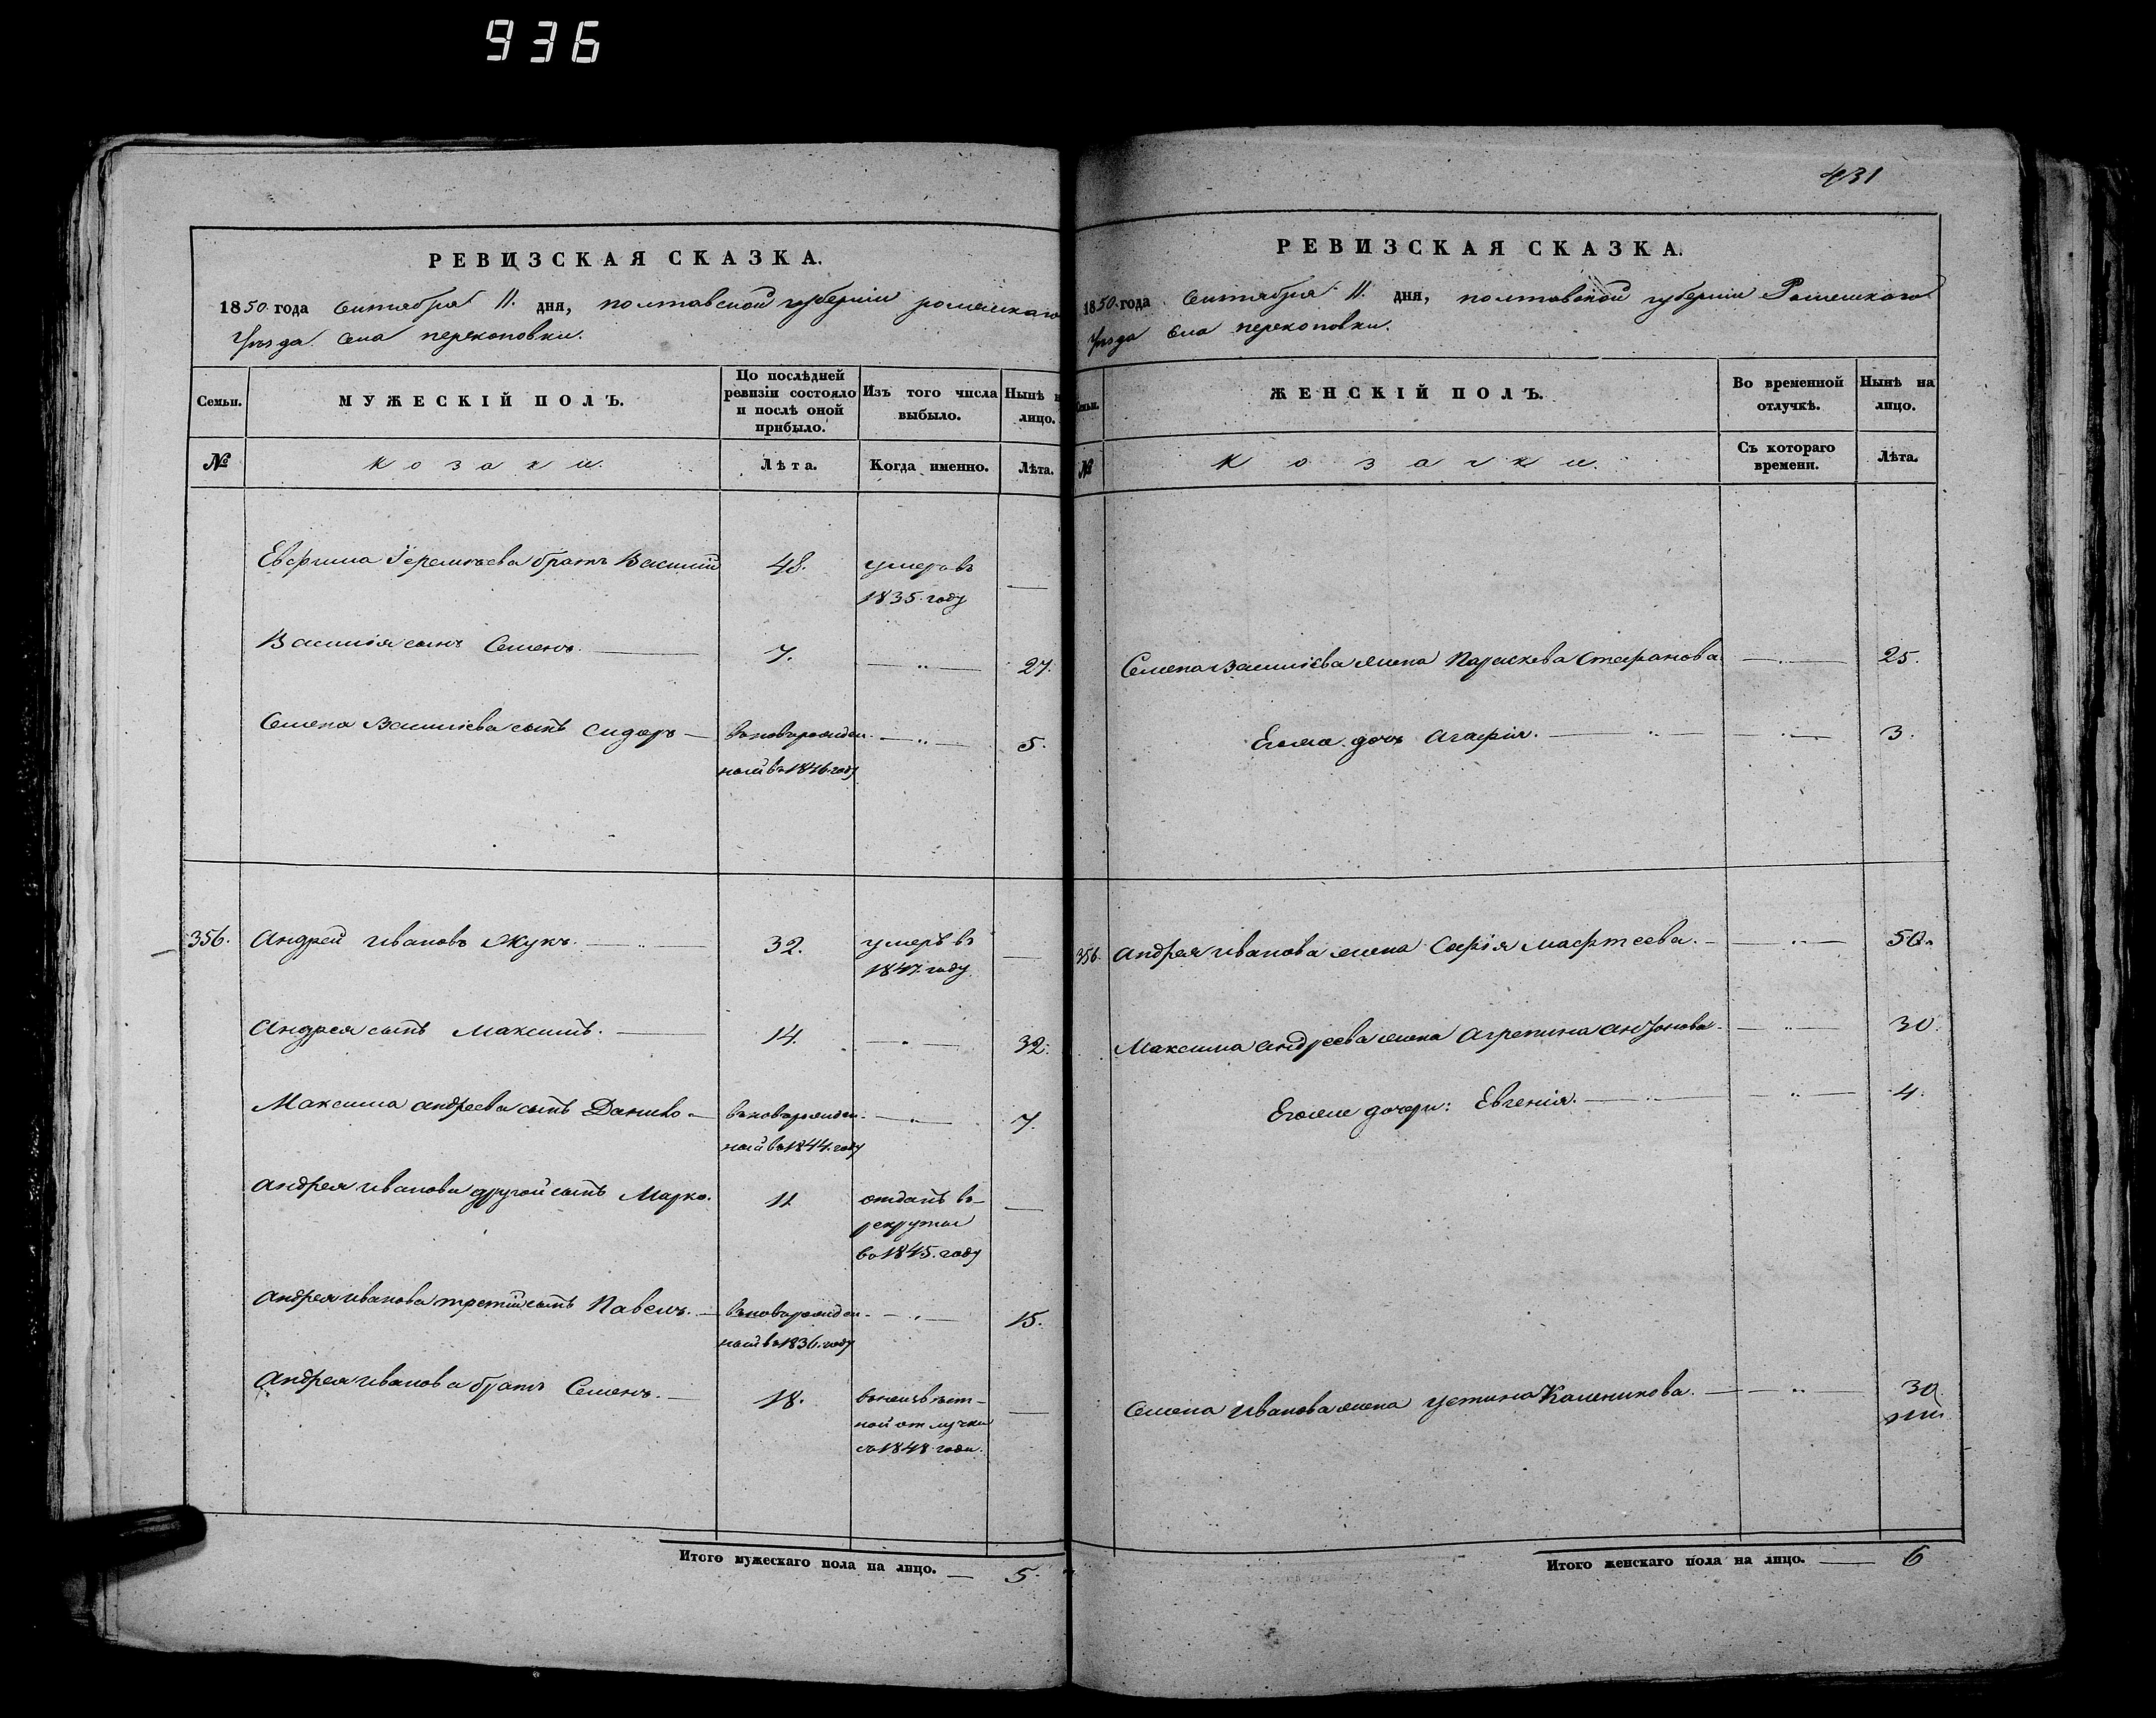 936
431
РЕВИЗСКАЯ СКАЗКА.
1850 года Сентября 11. дня, полтавской губерніи роменскаго
Уѣзда села перекоповки.
Семьи. МУЖЕСКІЙ ПОЛЪ. По послѣдней ревизіи состояло и послѣ оной прибыло. Изъ того числа выбыло. Нынѣ на лицо.
№ козаки. Лѣта. Когда именно. Лѣта.
Евфима Іеремѣева братъ Василій 48. умеръ въ
1835. году
Василія сынъ Семенъ. 7. 27.
Семена Василіева сынъ Сидоръ въ новорожден- 5.
ной въ 1846 году
356. Андрей Ивановъ Жукъ. 32. умеръ въ
1847. году
Андрея сынъ Максимъ. 14. 32.
Максима андреева сынъ Данило въ новорожден- 7.
ной въ 1844. году
Андрея иванова другой сынъ Марко. 11 отданъ въ
рекруты
въ 1845. году
Андрея иванова третій сынъ Павелъ. въ новорожден- 15.
ной въ 1836. году
Андрея иванова братъ Семенъ. 18. въ неизвѣст-
ной отлучки
съ 1848 года.
Итого мужескаго пола на лицо. 5
РЕВИЗСКАЯ СКАЗКА.
1850 года Сентября 11. дня, полтавской губерніи Роменскаго
Уѣзда села перекоповки.
Семьи. ЖЕНСКІЙ ПОЛЪ. Во временной отлучкѣ. Нынѣ на лицо.
№ козачки. Съ котораго времени. Лѣта.
Семена василіева жена Параскева Стефанова 25.
Егоже дочь Агафія. 3.
356. Андрея иванова жена Софія Мафтеева. 50.
Максима андреева жена Агрепина антонова 30.
Егоже дочери: Евгенія. 4.
Семена Иванова жена Устина Каленикова. 30.
Итого женскаго пола на лицо. 6